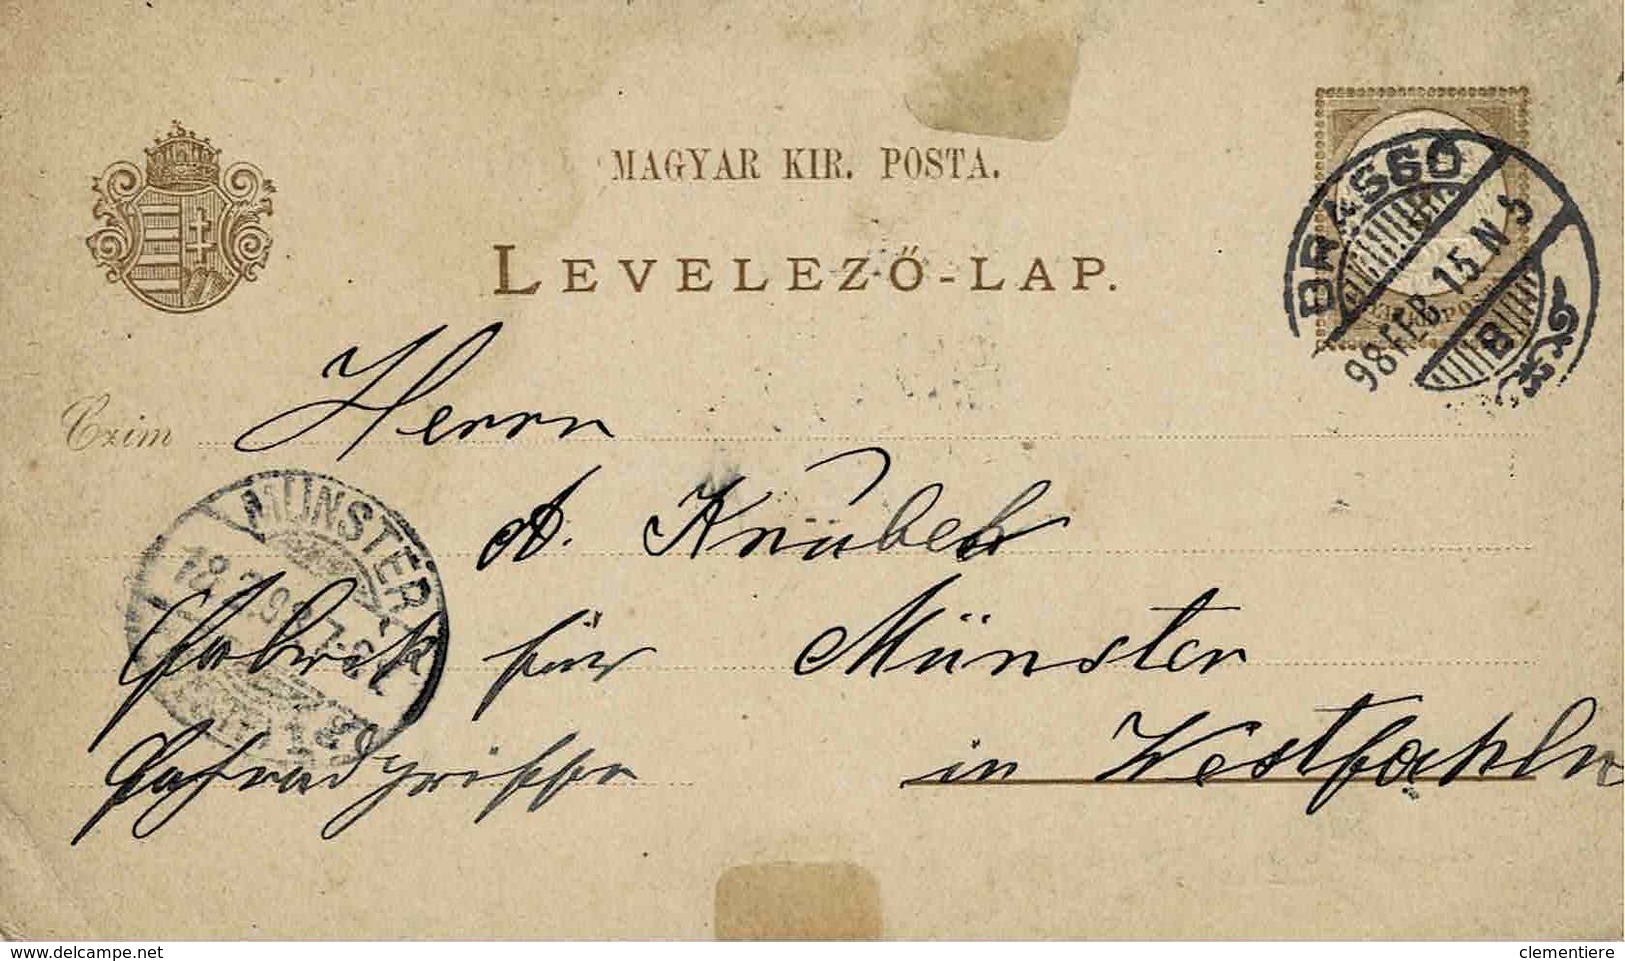 MAGYAR KIR. POSTA.
LEVELEZŐ-LAP.
BRASSÓ
98 FEB 15. N 5
B
Czim Herrn
A. Knübel
MÜNSTER
Fabrik für Münster
Fahrradgriffe in Westfahln
www.delcampe.net
clementiere